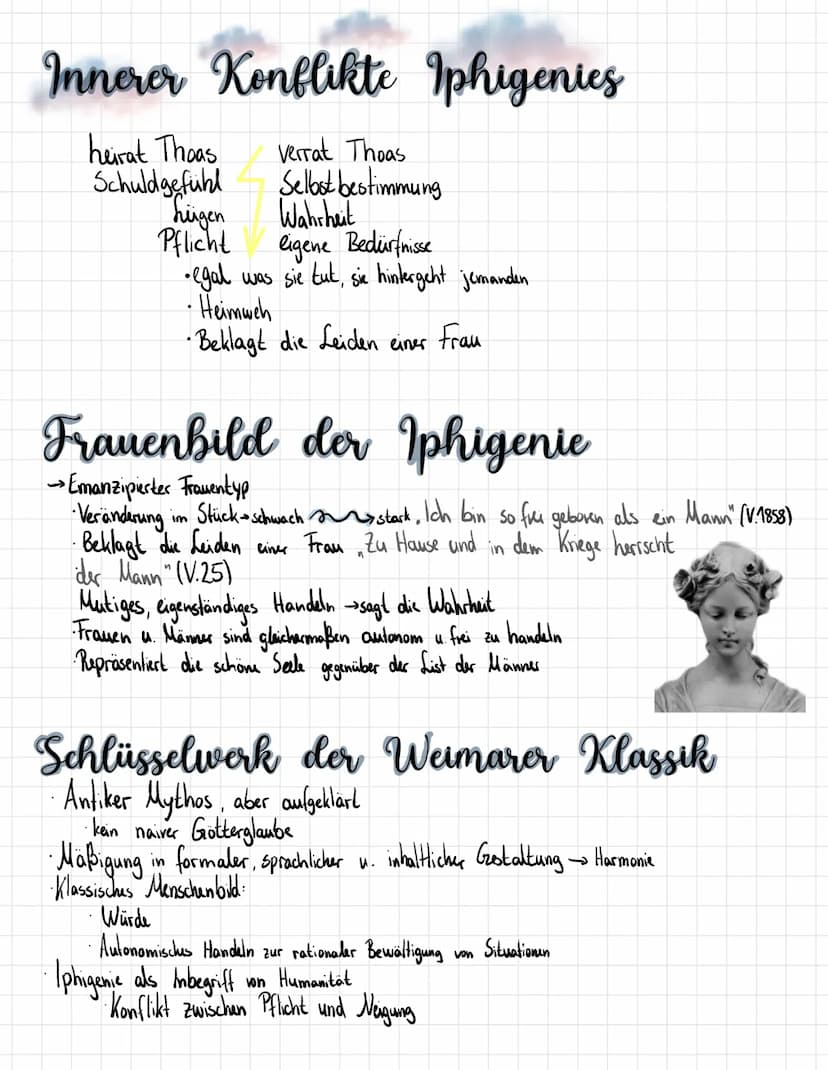 Innerer Konflikte Iphigenies
heirat Thoas verrat Thoas
Schuldgefühl Selbstbestimmung
lügen Wahrheit
Pflicht eigene Bedürfnisse
•egal was sie tut, sie hintergeht jemanden
• Heimweh
• Beklagt die Leiden einer Frau
Frauenbild der Iphigenie
→Emanzipierter Frauentyp
•Veränderung im Stück→schwach → stark „Ich bin so frei geboren als ein Mann" (V.1858)
• Beklagt die Leiden einer Frau „Zu Hause und in dem Kriege herrscht
der Mann" (V.25)
Mutiges, eigenständiges Handeln →sagt die Wahrheit
•Frauen u. Männer sind gleichermaßen autonom u. frei zu handeln
•Repräsentiert die schöne Seele gegenüber der List der Männer
Schlüsselwerk der Weimarer Klassik
• Antiker Mythos, aber aufgeklärt
• kein naiver Götterglaube
• Mäßigung in formaler, sprachlicher u. inhaltlicher Gestaltung → Harmonie
•Klassisches Menschenbild:
• Würde
• Autonomisches Handeln zur rationaler Bewältigung von Situationen
• Iphigenie als Inbegriff von Humanität
• Konflikt zwischen Pflicht und Neigung